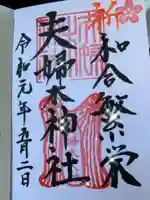 和合繁栄
夫婦木神社
令和元年五月二日